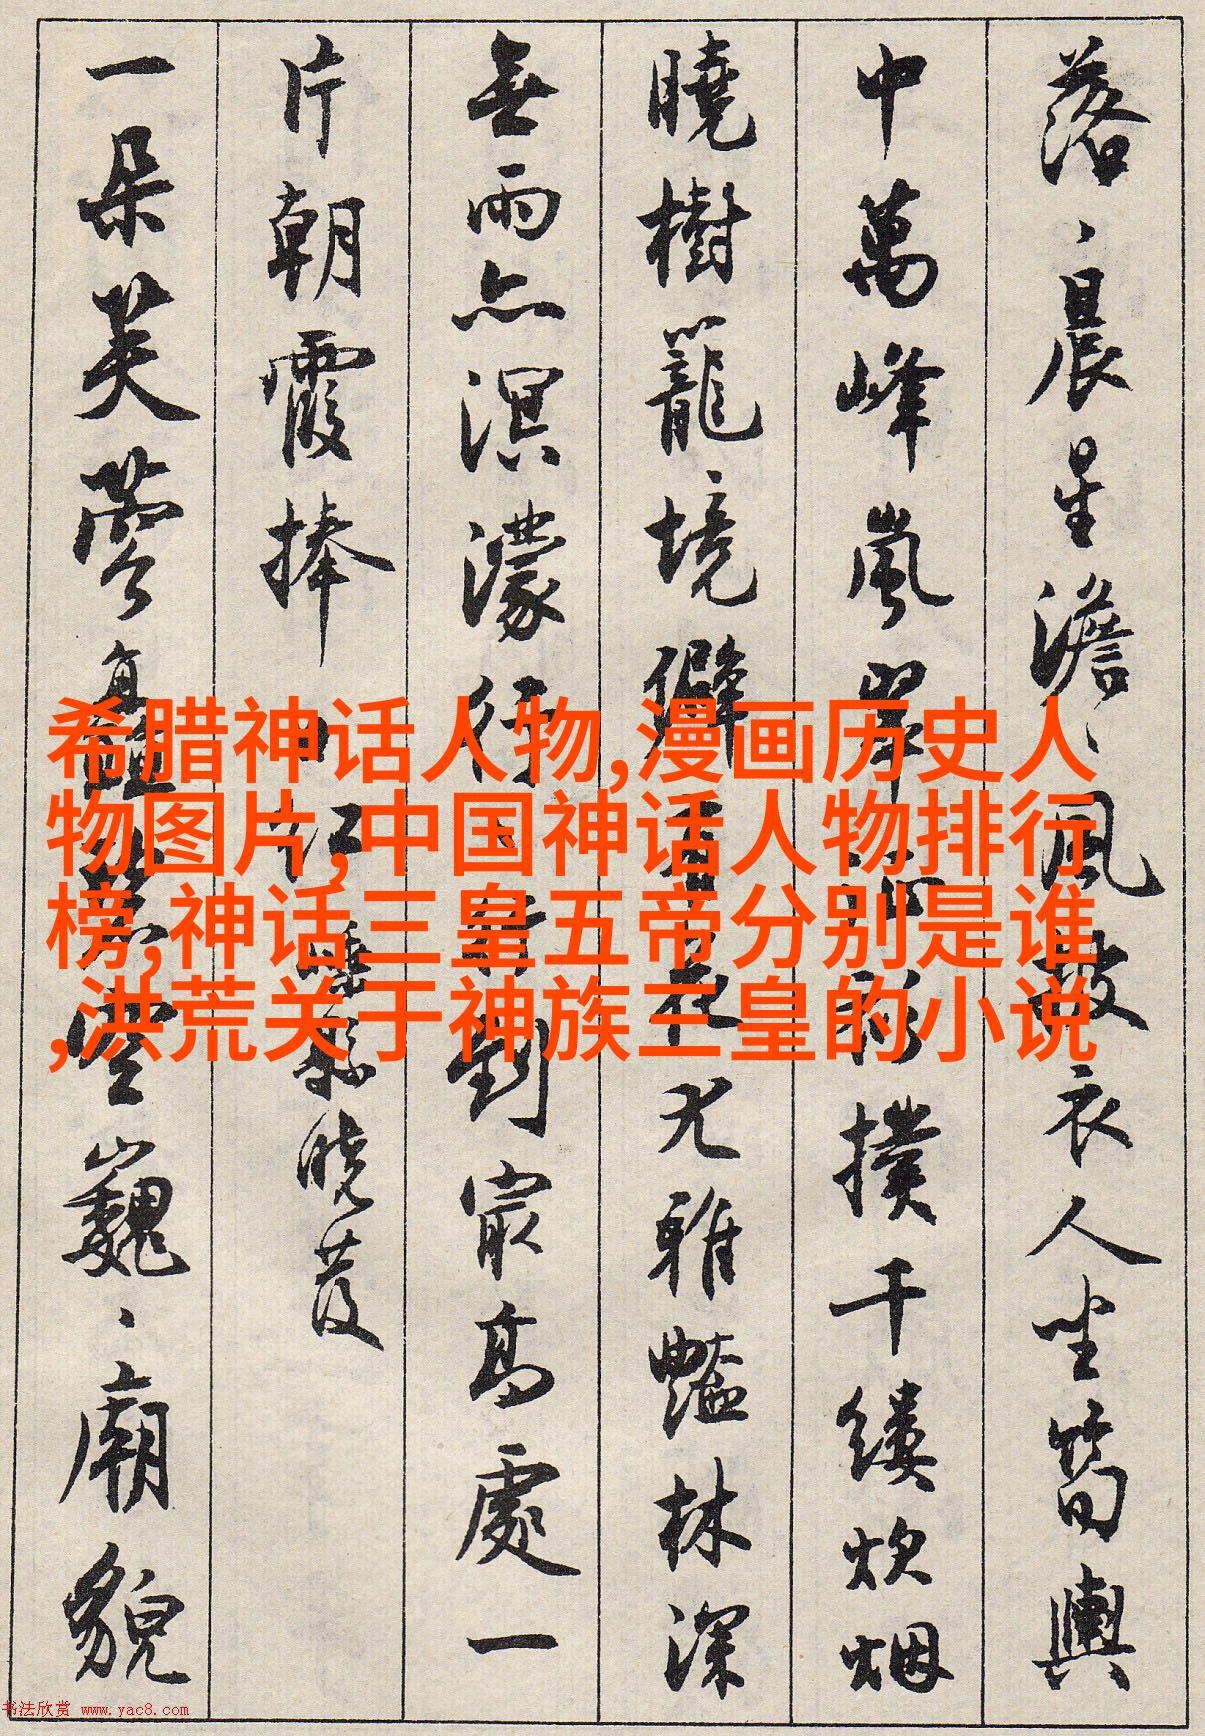 落、晨星澹、風披衣人坐筍輿
中萬峰嵐翠 撲千縷炊烟
曉樹籠境僻 花尤雅豔林深
無雨亦溟濛行 到最高處一
片朝霞捧日紅 曉發
一朵芙蓉 雲巍、廟貌
希腊神话人物,漫画历史人
物图片,中国神话人物排行
榜,神话三皇五帝分别是谁
,洪荒关于神族三皇的小说
书法欣赏 www.yac8.com